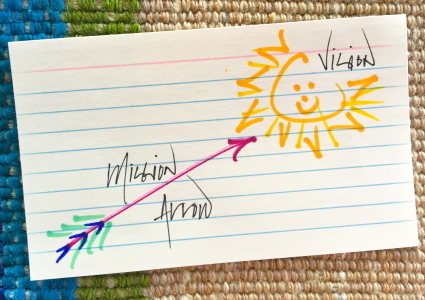 Vision
Mission
Arrow